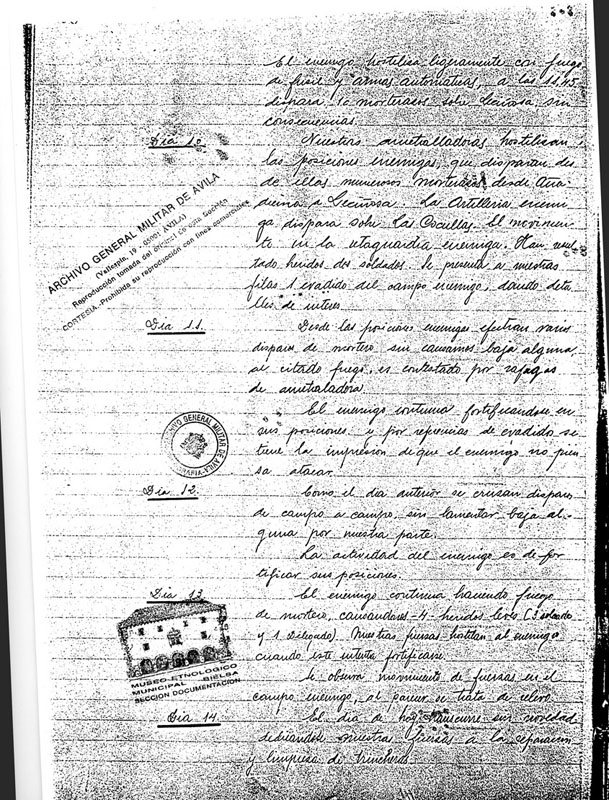 El enemigo hostiliza ligeramente con fuego
de fusil y armas automaticas, a las 11.45
dispara 10 morterazos sobre Leciñosa, sin
consecuencias.
Dia 10.
Nuestras ametralladoras hostilizan
las posiciones enemigas, que disparan des
de ellas numerosos morterazos desde
a Leciñosa. La Artilleria enemi
ga dispara sobre las Cocullas. El movimien-
to en la retaguardia enemiga. Han resul
tado heridos dos soldados. Se presenta a nuestras
filas 1 evadido del campo enemigo, dando deta
lles de interes
Dia 11.
Desde las posiciones enemigas efectuan varios
disparos de mortero sin causarnos baja alguna
al citado fuego, es contestado por rafagas
de ametralladora
El enemigo continua fortificandose en
sus posiciones y por referencias de evadido se
tiene la impresión de que el enemigo no pien
sa atacar.
Dia 12.
Como el dia anterior se cruzan disparos
de campo a campo, sin lamentar baja al-
guna por nuestra parte.
La actividad del enemigo es de for
tificar sus posiciones.
Dia 13.
El enemigo continua haciendo fuego
de mortero, causandonos -4- heridos leves (3 soldado
y 1). Nuestras fuerzas hostilizan al enemigo
cuando este intenta fortificarse.
Se observa movimiento de fuerzas en el
campo enemigo, al parecer se trata de relevo.
Dia 14.
El dia de hoy transcurre sin novedad
dedicandose nuestras fuerzas a la reparacion
y limpieza de trincheras.
ARCHIVO GENERAL MILITAR DE AVILA
(Vallespin, 19 - 05001 AVILA)
Reproducción tomada del original de esta Sección
CORTESIA.-Prohibida su reproducción con fines comerciales
ARCHIVO GENERAL MILITAR DE AVILA
MUSEO-ETNOLOGICO
MUNICIPAL BIELSA
SECCIÓN DOCUMENTACION